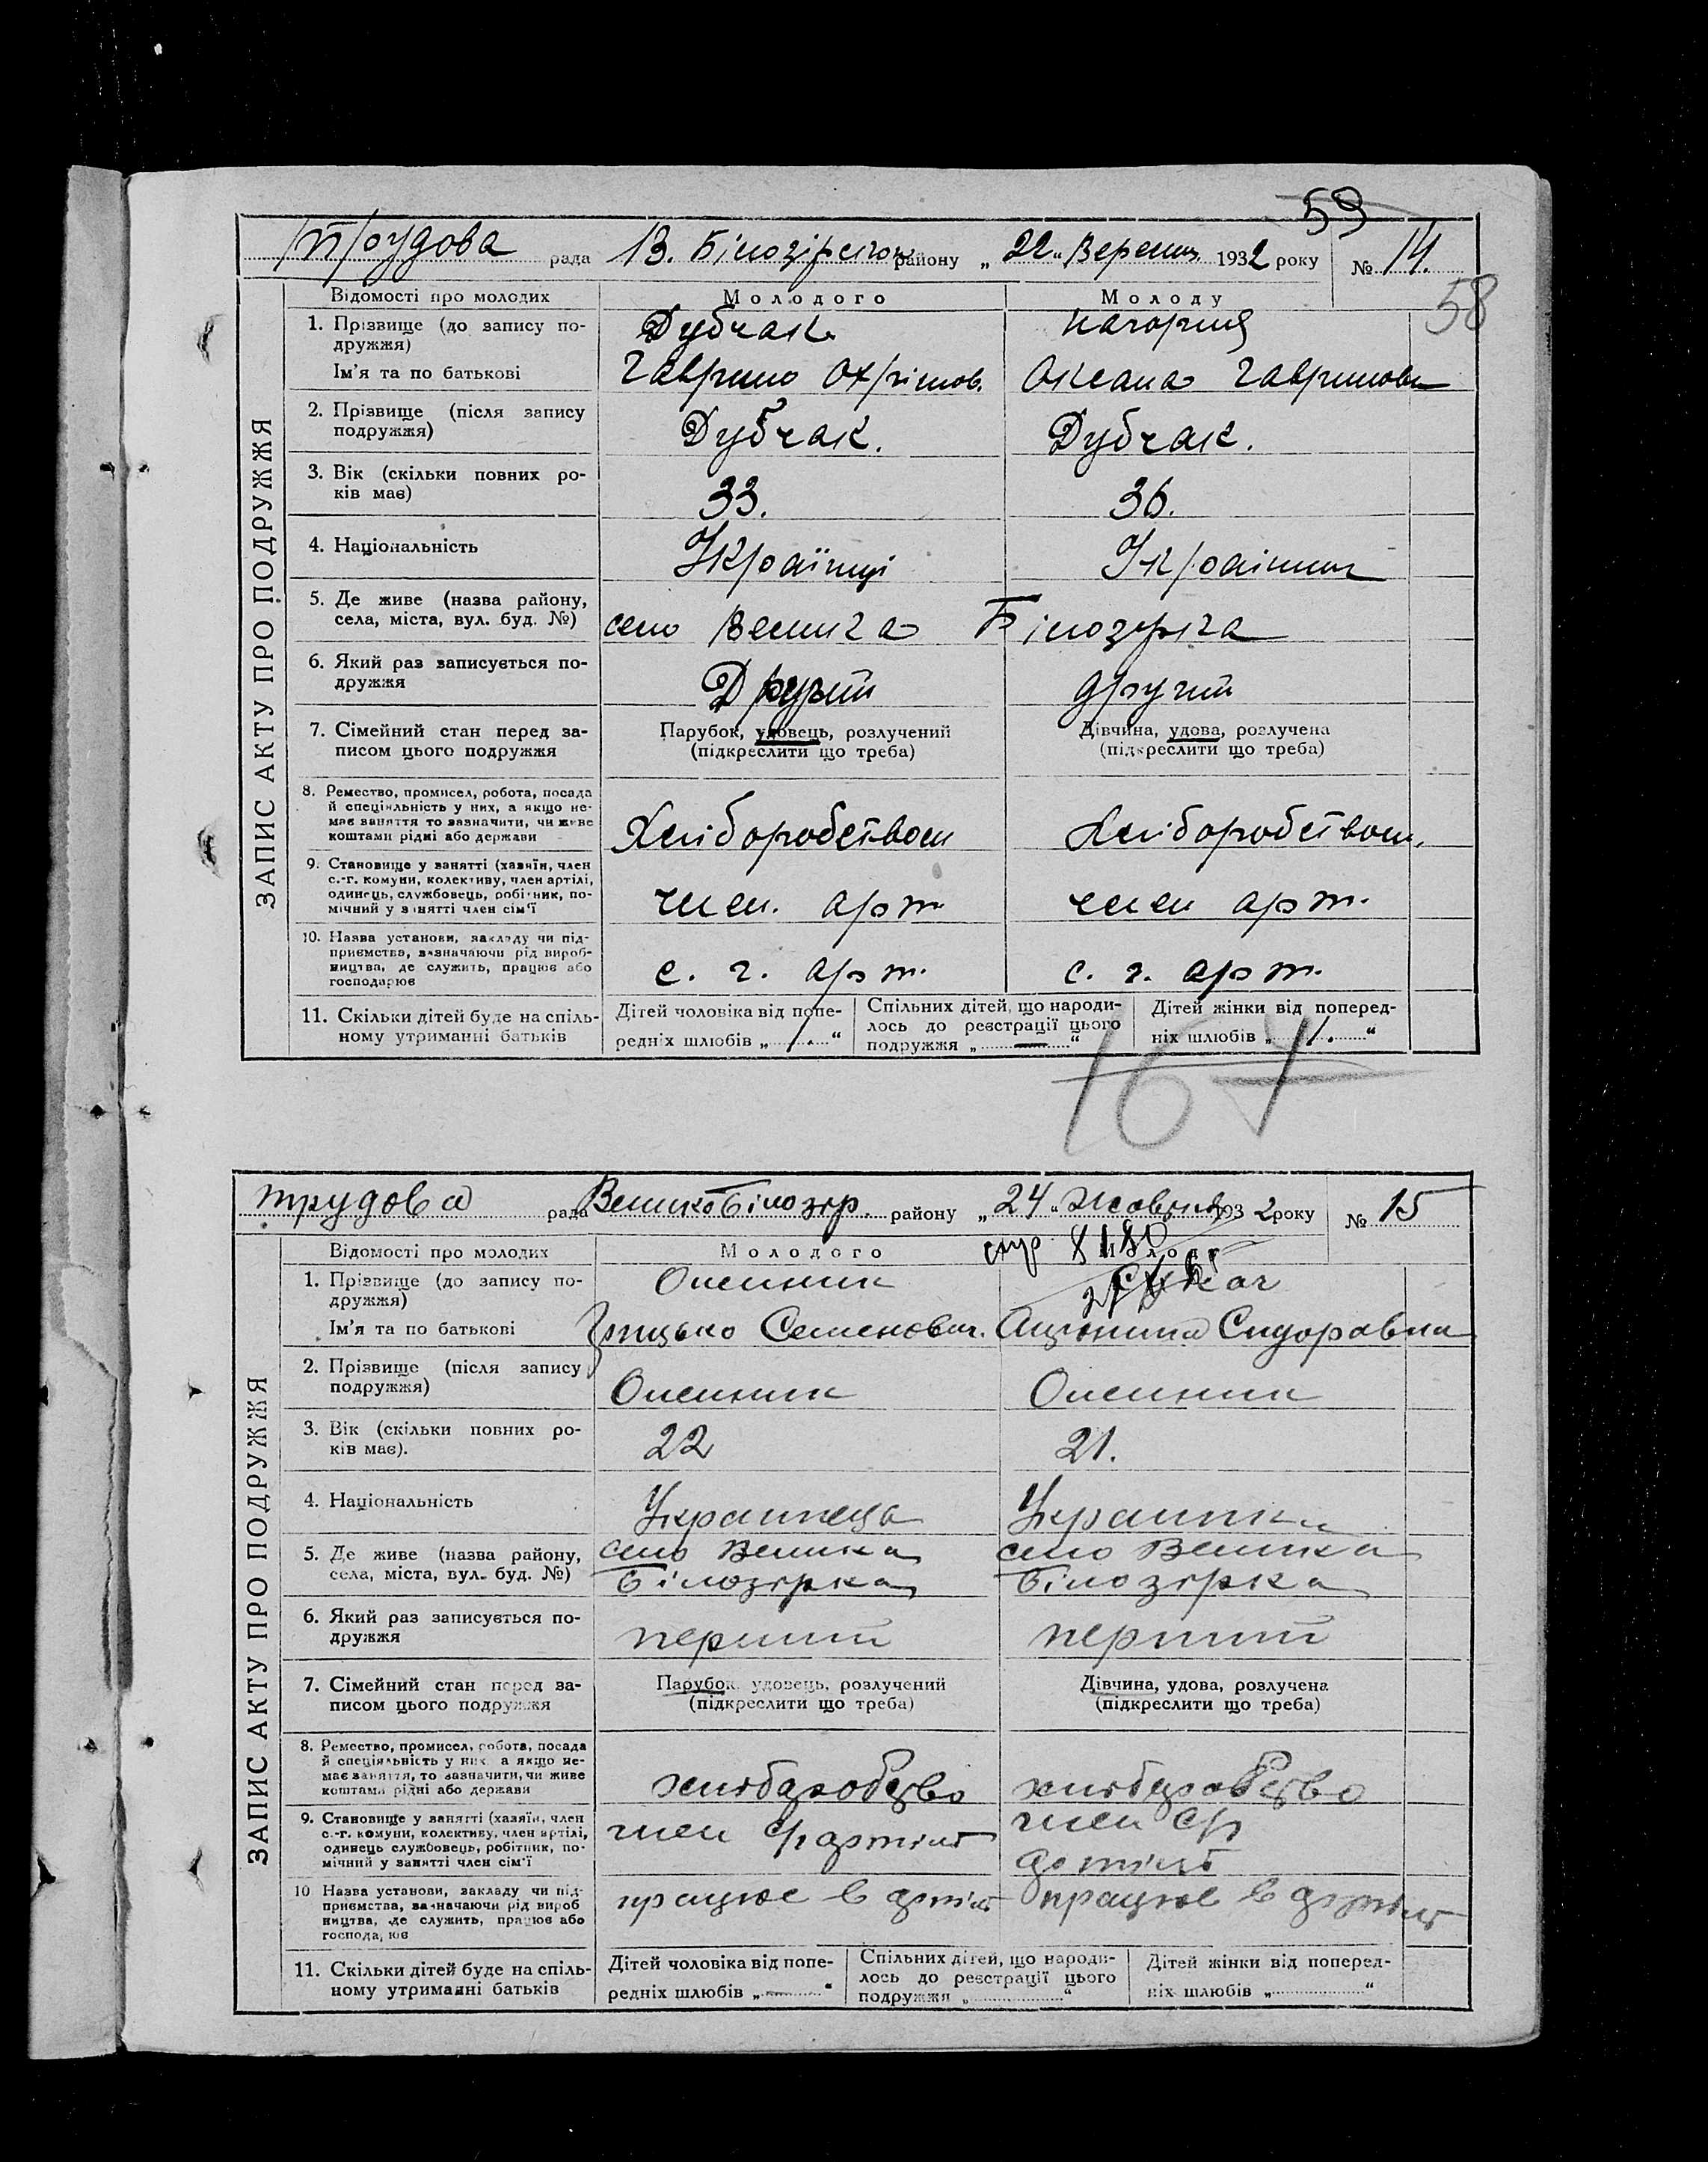 59
Трудова рада В. Білозірськ району „22„ Вересня 1932 року № 14.
58
ЗАПИС АКТУ ПРО ПОДРУЖЖЯ
Відомості про молодих Молодого Молоду
1. Прізвище (до запису по-
дружжя) Дубчак
Ім'я та по батькові Гаврило Охрімов. Оксана Гавриловн
2. Прізвище (після запису
подружжя) Дубчак. Дубчак.
3. Вік (скільки повних ро-
ків має) 33. 36.
4. Національність Українці Українка
5. Де живе (назва району,
села, міста, вул. буд. №) село Велика Білозірка
6. Який раз записується по-
дружжя Другий другий
7. Сімейний стан перед за-
писом цього подружжя
Парубок, удовець, розлучений
(підкреслити що треба)
Дівчина, удова, розлучена
(підкреслити що треба)
8. Ремество, промисел, робота, посада
й спеціяльність у них, а якщо не-
має заняття то зазначити, чи живе
коштами рідні або держави
Хліборобством Хліборобством,
9. Становище у занятті (хазяїн, член
с.-г. комуни, колективу, член артілі,
одинець, службовець, робітник, по-
мічний у занятті член сім'ї
член. арт член арт.
10. Назва установи, закладу чи під-
приємства, зазначаючи рід вироб-
ництва, де служить, працює або
господарює
с. г. арт. с. г. арт.
11. Скільки дітей буде на спіль-
ному утриманні батьків
Дітей чоловіка від попе-
редніх шлюбів „ 1. “
Спільних дітей, що народи-
лось до реєстрації цього
подружжя „ — “
Дітей жінки від поперед-
ніх шлюбів „ 1. “
Трудова рада Великобілозір. району „24„ Жовтня 1932 року № 15
ЗАПИС АКТУ ПРО ПОДРУЖЖЯ
Відомості про молодих Молодого Молоду
1. Прізвище (до запису по-
дружжя) Олейник
Ім'я та по батькові Грицько Семенович. Сидоравна
2. Прізвище (після запису
подружжя) Олейник Олейник
3. Вік (скільки повних ро-
ків має). 22 21.
4. Національність Украинець Украинка
5. Де живе (назва району,
села, міста, вул. буд. №)
село Велика Білозірка
село Велика Білозірка
6. Який раз записується по-
дружжя перший перший
7. Сімейний стан перед за-
писом цього подружжя
Парубок, удовець, розлучений
(підкреслити що треба)
Дівчина, удова, розлучена
(підкреслити що треба)
8. Ремество, промисел, робота, посада
й спеціяльність у них, а якщо не-
має заняття, то зазначити, чи живе
коштами рідні або держави
хлібаробство хлібаробство
9. Становище у занятті (хазяїн, член
с.-г. комуни, колективу, член артілі,
одинець службовець, робітник, по-
мічний у занятті член сім'ї
член с/г артілі
член с/г
артілі
10 Назва установи, закладу чи під-
приємства, зазначаючи рід вироб
ництва, де служить, працює або
господарює
працює в артілі працює в артілі
11. Скільки дітей буде на спіль-
ному утриманні батьків
Дітей чоловіка від попе-
редніх шлюбів „ — “
Спільних дітей, що народи-
лось до реєстрації цього
подружжя „ “
Дітей жінки від поперед-
ніх шлюбів „ “